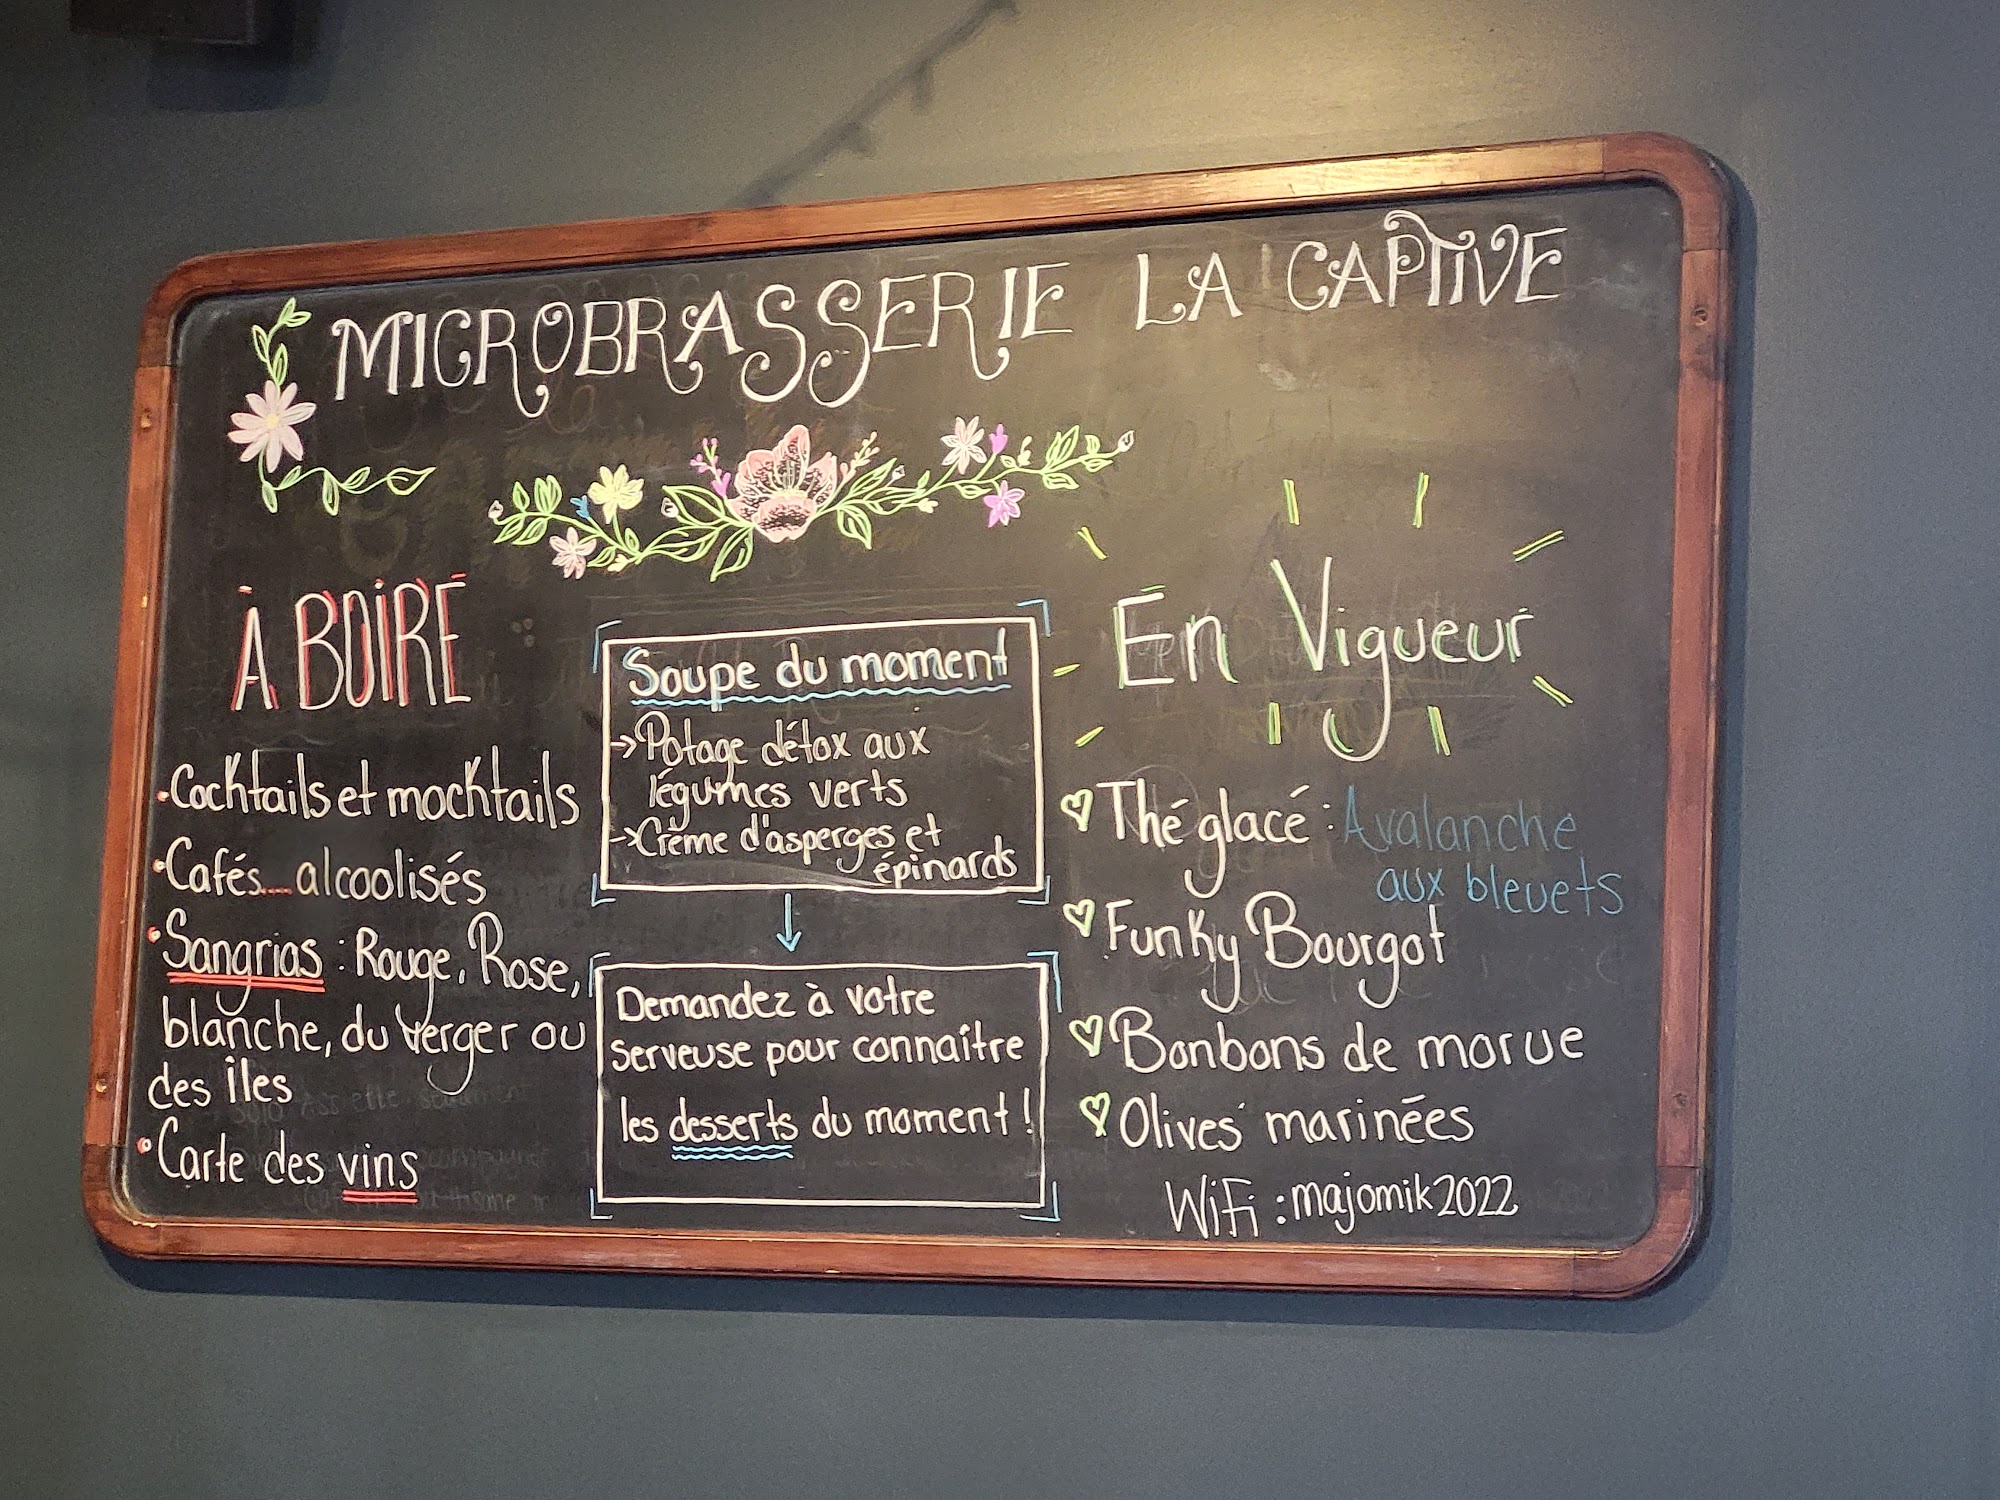 MICROBRASSERIE LA CAPTIVE
À BOIRE
• Cocktails et mocktails
• Cafés.... alcoolisés
• Sangrias : Rouge, Rose,
blanche, du verger ou
des îles
• Carte des vins
Soupe du moment
→ Potage détox aux
légumes verts
→ Crème d'asperges et
épinards
Demandez à votre
serveuse pour connaître
les desserts du moment !
En Vigueur
Thé glacé : Avalanche
aux bleuets
Funky Bourgot
Bonbons de morue
Olives marinées
WiFi : majomik2022